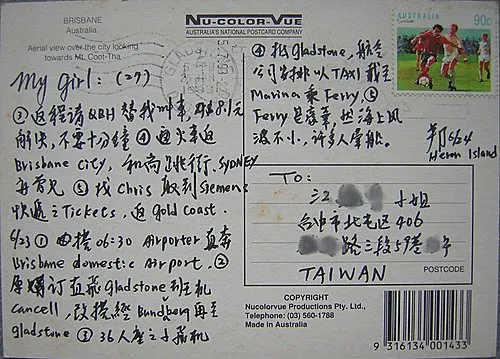 BRISBANE
Australia
Aerial view over the city looking
towards Mt. Coot-Tha.
NU-COLOR-VUE
AUSTRALIA'S NATIONAL POSTCARD COMPANY
AUSTRALIA
90c
My girl: (27)
③返程請QBH替我叫車, 取8.1元
解決, 不要十分鐘 ④返火車返
Brisbane City, 和尚逛街, SYDNEY
再首見 ⑤找 Chris 取到 Siemens
快遞之Tickets, 返 gold coast.
6/23 ① 搭 06:30 Airporter 直奔
Brisbane domestic Airport. ②
原購訂直飛 gladstone 班機
cancell, 改搭經 Bundberg 再至
gladstone ③ 36人座之小飛機
④ 抵 gladstone, 航空
公司安排以 TAXI 載至
Marina 乘 Ferry, ⑤
Ferry 是豪華, 但海上風
浪不小, 許多人暈船.
6/24
Heron Island
To:
江 小姐
台中市北屯區 406
路三段57巷
TAIWAN
POSTCODE
COPYRIGHT
Nucolorvue Productions Pty. Ltd.,
Telephone: (03) 560-1788
Made in Australia
9 316134 001433